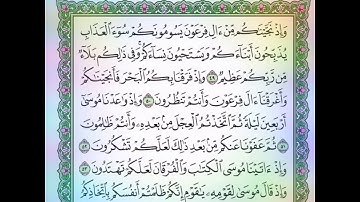 وَإِذْ نَجَّيْنَٰكُم مِّنْ ءَالِ فِرْعَوْنَ يَسُومُونَكُمْ سُوٓءَ ٱلْعَذَابِ
يُذَبِّحُونَ أَبْنَآءَكُمْ وَيَسْتَحْيُونَ نِسَآءَكُمْ وَفِى ذَٰلِكُم بَلَآءٌ
مِّن رَّبِّكُمْ عَظِيمٌ ٤٩ وَإِذْ فَرَقْنَا بِكُمُ ٱلْبَحْرَ فَأَنجَيْنَٰكُمْ
وَأَغْرَقْنَآ ءَالَ فِرْعَوْنَ وَأَنتُمْ تَنظُرُونَ ٥٠ وَإِذْ وَٰعَدْنَا مُوسَىٰٓ
أَرْبَعِينَ لَيْلَةً ثُمَّ ٱتَّخَذْتُمُ ٱلْعِجْلَ مِنۢ بَعْدِهِۦ وَأَنتُمْ ظَٰلِمُونَ
٥١ ثُمَّ عَفَوْنَا عَنكُم مِّنۢ بَعْدِ ذَٰلِكَ لَعَلَّكُمْ تَشْكُرُونَ ٥٢
وَإِذْ ءَاتَيْنَا مُوسَى ٱلْكِتَٰبَ وَٱلْفُرْقَانَ لَعَلَّكُمْ تَهْتَدُونَ ٥٣
وَإِذْ قَالَ مُوسَىٰ لِقَوْمِهِۦ يَٰقَوْمِ إِنَّكُمْ ظَلَمْتُمْ أَنفُسَكُم بِٱتِّخَاذِكُمُ